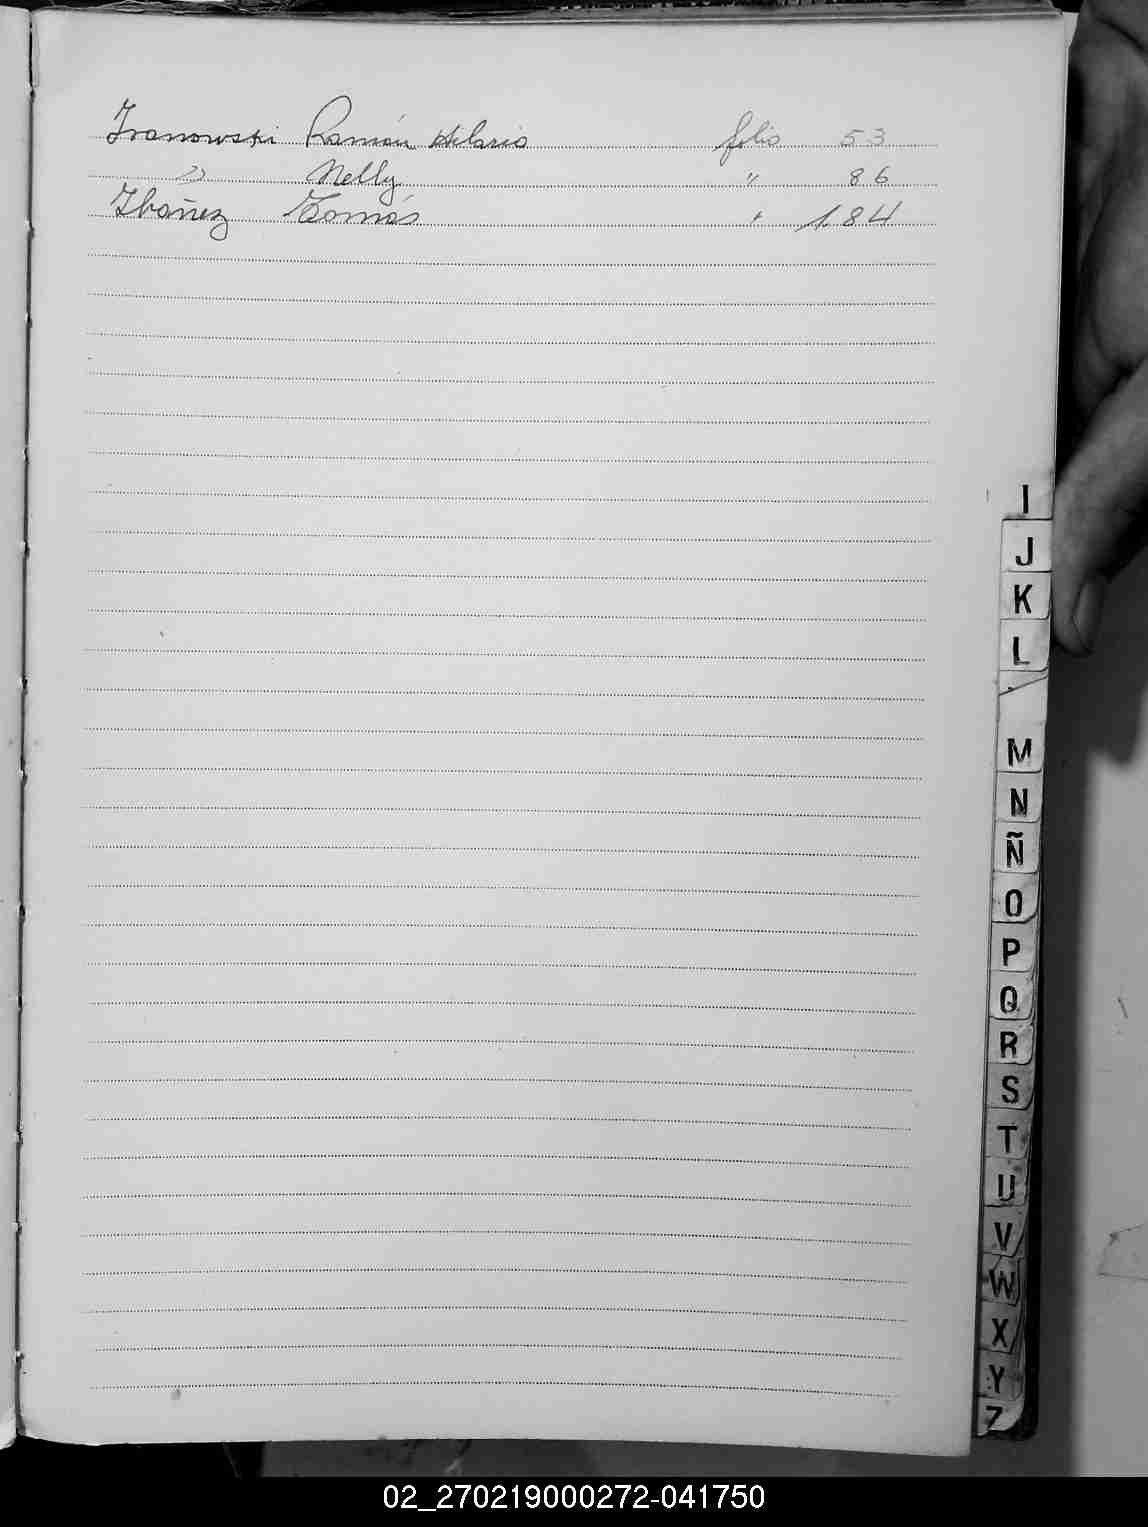 Ivanowski Ramón Hilario folio 53
" Nelly " 86
Ibáñez Tomás " 184
I
J
K
L
M
N
Ñ
O
P
Q
R
S
T
U
V
W
X
Y
Z
02_270219000272-041750